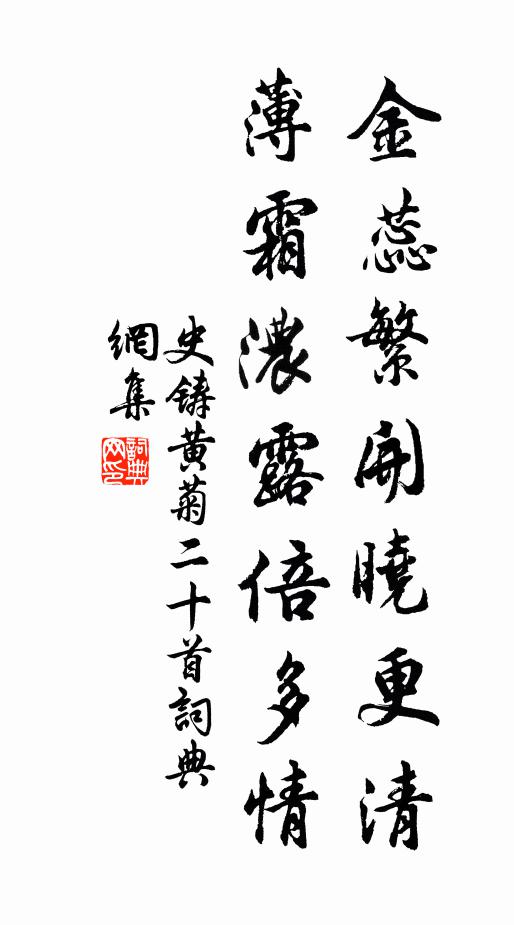 金蕊繁開曉更清
薄霜濃露倍多情
史鑄黃菊二十首詞典
網集
詞典網印